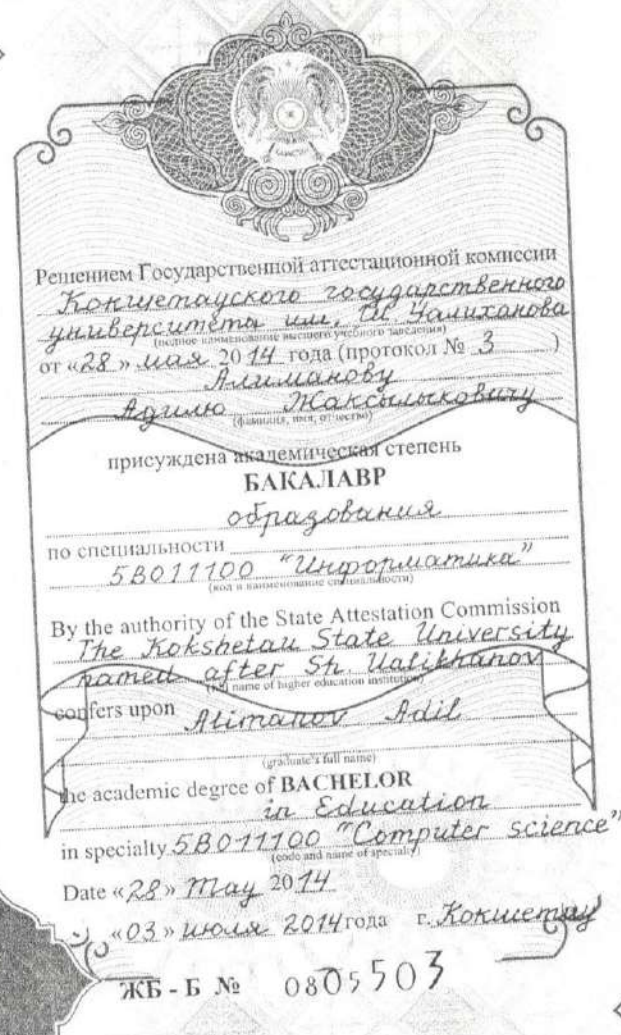 Решением Государственной аттестационной комиссии
Кокшетауского государственного
университета им. Ш. Уалиханова
(полное наименование высшего учебного заведения)
от «28» мая 2014 года (протокол № 3 )
Алиманову
Адилю Жаксылыковичу
(фамилия, имя, отчество)
присуждена академическая степень
БАКАЛАВР
образования
по специальности
5В011100 "Информатика"
(код и наименование специальности)
By the authority of the State Attestation Commission
The Kokshetau State University
named after Sh. Ualikhanov
(full name of higher education institution)
confers upon Alimanov Adil
(graduate's full name)
the academic degree of BACHELOR
in Education
in specialty 5B011100 "Computer science"
(code and name of specialty)
Date «28» May 2014
«03» июля 2014 года г. Кокшетау
ЖБ - Б № 0805503